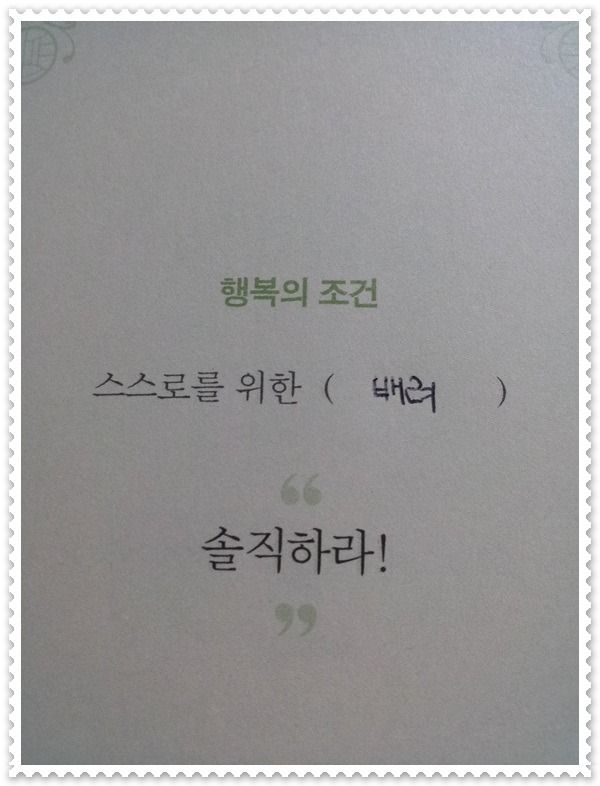 행복의 조건
스스로를 위한 ( 배려 )
“
솔직하라!
”